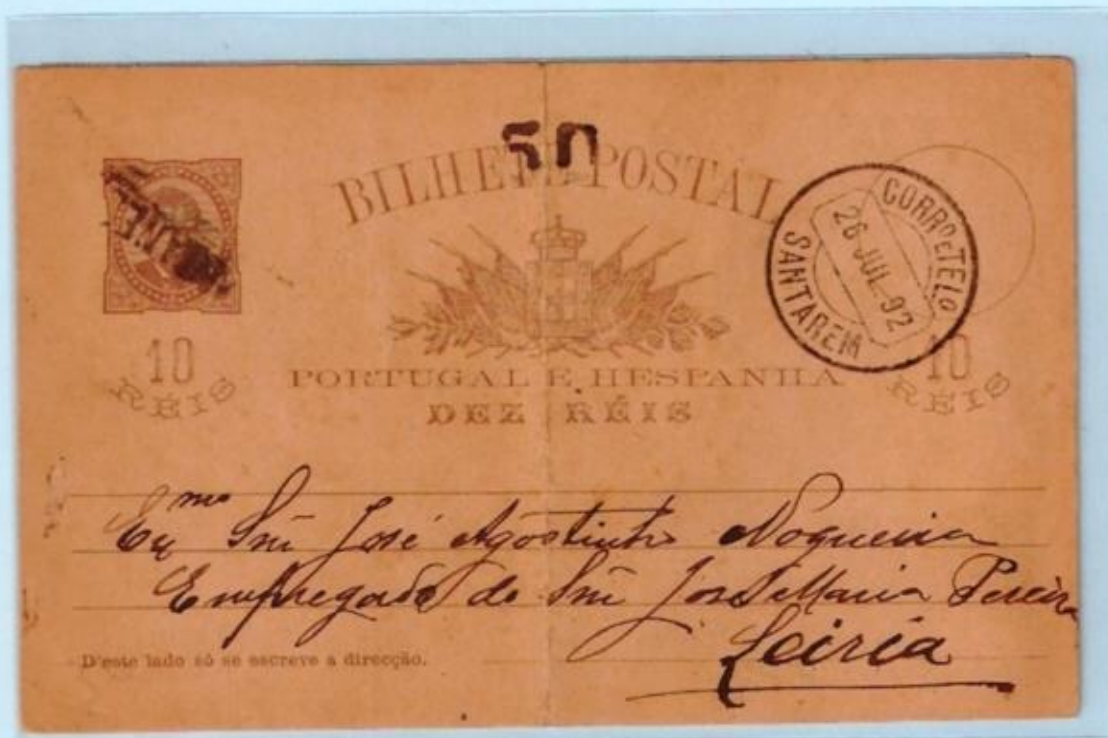 50
BILHETE POSTAL
CORRO E TELO
26 JUL 92
SANTAREM
10
RÉIS
PORTUGAL E HESPANHA
DEZ RÉIS
10
RÉIS
Exmo Snr José Agostinho Nogueira
Empregado do Snr José Maria Pereira
Leiria
D'este lado só se escreve a direcção.